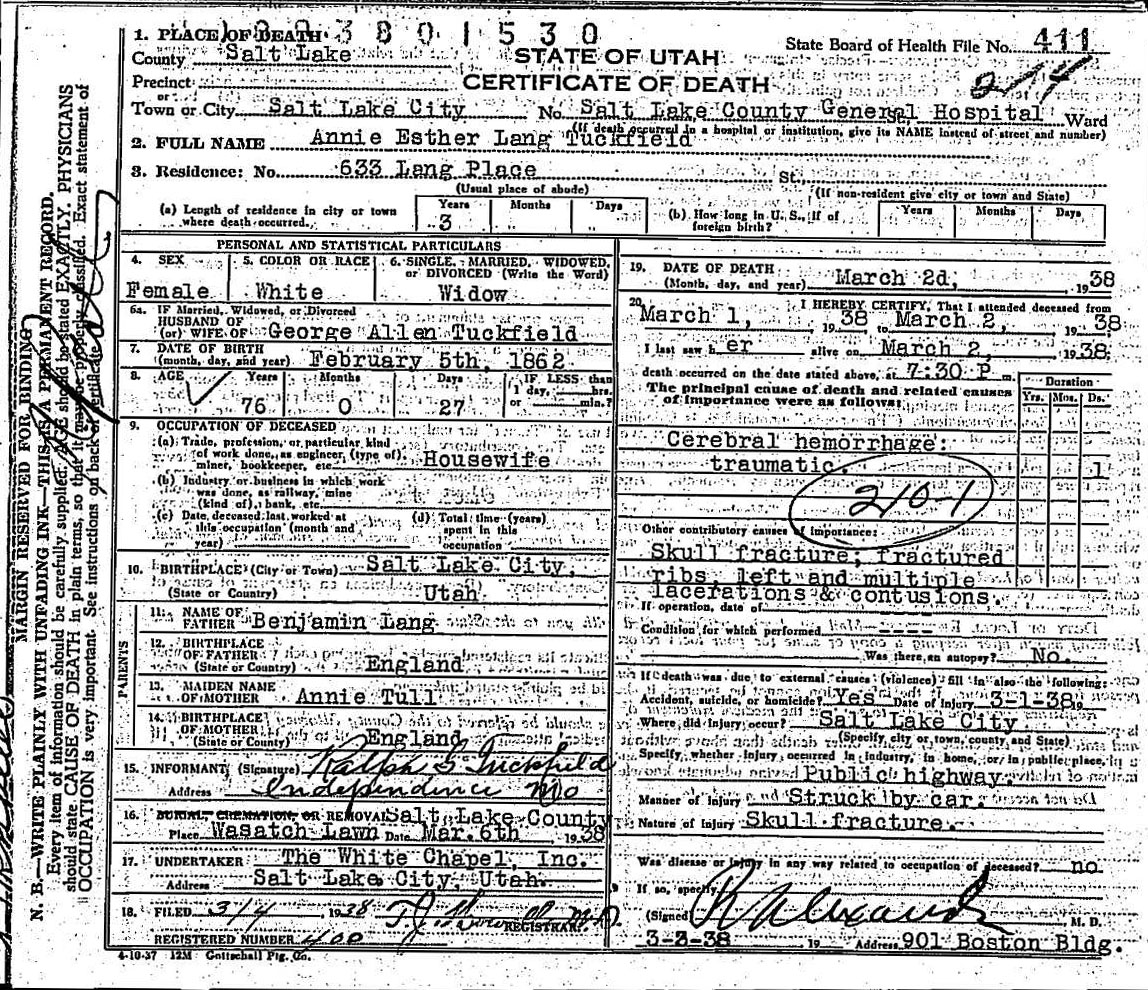 1. PLACE OF DEATH 3 8 0 1 5 3 0
State Board of Health File No. 411
County Salt Lake
STATE OF UTAH
Precinct
CERTIFICATE OF DEATH
Town or City Salt Lake City No. Salt Lake County General Hospital Ward
(If death occurred in a hospital or institution, give its NAME instead of street and number)
2. FULL NAME Annie Esther Lang Tuckfield
3. Residence: No. 633 Lang Place St.,
(Usual place of abode) (If non-resident give city or town and State)
(a) Length of residence in city or town where death occurred. Years 3 Months Days
(b) How long in U. S., if of foreign birth? Years Months Days
PERSONAL AND STATISTICAL PARTICULARS
4. SEX 5. COLOR OR RACE 6. SINGLE, MARRIED, WIDOWED, or DIVORCED (Write the Word)
Female White Widow
6a. IF Married, Widowed, or Divorced
HUSBAND OF
(or) WIFE OF George Allen Tuckfield
7. DATE OF BIRTH
(month, day, and year) February 5th, 1862
8. AGE Years Months Days IF LESS than
1 day, hrs.
or min.?
76 0 27
9. OCCUPATION OF DECEASED
(a) Trade, profession, or particular kind
of work done, as engineer, (type of)
miner, bookkeeper, etc. Housewife
(b) Industry or business in which work
was done, as railway, mine
(kind of), bank, etc.
(c) Date deceased last worked at
this occupation (month and
year)
(d) Total time (years)
spent in this
occupation
10. BIRTHPLACE (City or Town) Salt Lake City,
(State or Country) Utah
PARENTS
11. NAME OF
FATHER Benjamin Lang
12. BIRTHPLACE
OF FATHER
(State or Country) England
13. MAIDEN NAME
OF MOTHER Annie Tull
14. BIRTHPLACE
OF MOTHER
(State or Country) England
15. INFORMANT, (Signature) Ralph G Tuckfield
Address Independence Mo
16. BURIAL, CREMATION, OR REMOVAL Salt Lake County
Place Wasatch Lawn Date Mar. 6th 1938
17. UNDERTAKER The White Chapel, Inc.
Address Salt Lake City, Utah.
18. FILED 3/4 1938 M.D.
REGISTRAR
REGISTERED NUMBER 400
4-10-37 12M Gottschall Ptg. Co.
19. DATE OF DEATH
(Month, day, and year) March 2d, 1938
20. I HEREBY CERTIFY, That I attended deceased from
March 1, 1938 to March 2, 1938
I last saw her alive on March 2, 1938
death occurred on the date stated above, at 7:30 P m.
The principal cause of death and related causes
of importance were as follows:
Duration
Yrs. Mos. Ds.
Cerebral hemorrhage:
traumatic. 1
210-1
Other contributory causes of importance:
Skull fracture; fractured
ribs, left and multiple
lacerations & contusions.
If operation, date of
Condition for which performed
Was there an autopsy? No.
If death was due to external causes (violence) fill in also the following:
Accident, suicide, or homicide? Yes Date of Injury 3-1-38
Where did injury occur? Salt Lake City
(Specify city or town, county, and State)
Specify whether injury occurred in industry, in home, or in public place.
Public highway.
Manner of Injury Struck by car.
Nature of Injury Skull fracture.
Was disease or injury in any way related to occupation of deceased? no
If so, specify
(Signed) M. D.
3-3-38 19 Address 901 Boston Bldg.
MARGIN RESERVED FOR BINDING
N. B.—WRITE PLAINLY WITH UNFADING INK—THIS IS A PERMANENT RECORD.
Every item of information should be carefully supplied. AGE should be stated EXACTLY. PHYSICIANS
should state CAUSE OF DEATH in plain terms, so that it may be properly classified. Exact statement of
OCCUPATION is very important. See instructions on back of certificate